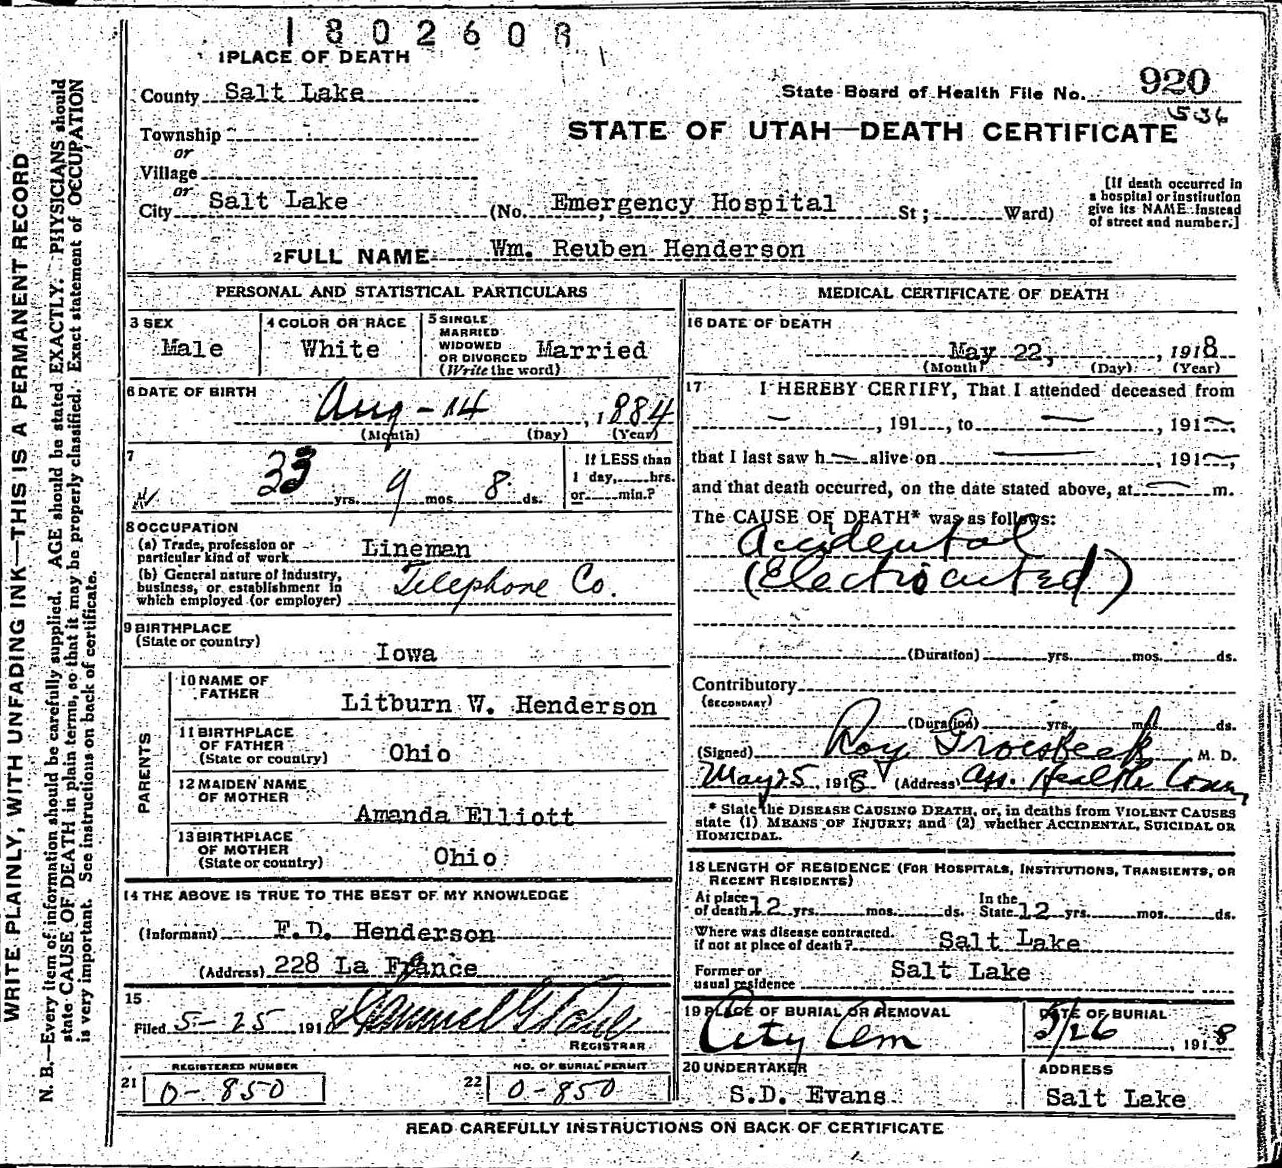 1802608
1 PLACE OF DEATH
County Salt Lake
State Board of Health File No. 920
536
Township
or
Village
or
City Salt Lake
STATE OF UTAH—DEATH CERTIFICATE
(No. Emergency Hospital St; Ward)
[If death occurred in
a hospital or institution
give its NAME instead
of street and number.]
2 FULL NAME Wm. Reuben Henderson
PERSONAL AND STATISTICAL PARTICULARS
3 SEX
Male
4 COLOR OR RACE
White
5 SINGLE
MARRIED
WIDOWED
OR DIVORCED Married
(Write the word)
6 DATE OF BIRTH
Aug - 14, 1884
(Month) (Day) (Year)
7
33 yrs. 9 mos. 8 ds.
If LESS than
1 day, hrs.
or min.?
8 OCCUPATION
(a) Trade, profession or
particular kind of work Lineman
(b) General nature of industry,
business, or establishment in
which employed (or employer) Telephone Co.
9 BIRTHPLACE
(State or country) Iowa
PARENTS
10 NAME OF
FATHER
Litburn W. Henderson
11 BIRTHPLACE
OF FATHER
(State or country) Ohio
12 MAIDEN NAME
OF MOTHER
Amanda Elliott
13 BIRTHPLACE
OF MOTHER
(State or country) Ohio
14 THE ABOVE IS TRUE TO THE BEST OF MY KNOWLEDGE
(Informant) F.D. Henderson
(Address) 228 La France
15
Filed 5-25 1918 Samuel G Paul
REGISTRAR
REGISTERED NUMBER
21 0-850
NO. OF BURIAL PERMIT
22 0-850
MEDICAL CERTIFICATE OF DEATH
16 DATE OF DEATH
May 22, , 1918
(Month) (Day) (Year)
17 I HEREBY CERTIFY, That I attended deceased from
— , 191 , to — , 191 ,
that I last saw h— alive on — , 191 ,
and that death occurred, on the date stated above, at — m.
The CAUSE OF DEATH* was as follows:
Accidental
(Electrocuted)
(Duration) yrs. mos. ds.
Contributory
(SECONDARY)
(Duration) yrs. mos. ds.
(Signed) Roy Groesbeck, M. D.
May 25 1918 (Address) Ass. Health Com
* State the DISEASE CAUSING DEATH, or, in deaths from VIOLENT CAUSES
state (1) MEANS OF INJURY; and (2) whether ACCIDENTAL, SUICIDAL OR
HOMICIDAL.
18 LENGTH OF RESIDENCE (FOR HOSPITALS, INSTITUTIONS, TRANSIENTS, OR
RECENT RESIDENTS)
At place
of death 12 yrs. mos. ds.
In the
State 12 yrs. mos. ds.
Where was disease contracted
if not at place of death? Salt Lake
Former or
usual residence Salt Lake
19 PLACE OF BURIAL OR REMOVAL
City Cem
DATE OF BURIAL
5/26, 1918
20 UNDERTAKER
S.D. Evans
ADDRESS
Salt Lake
READ CAREFULLY INSTRUCTIONS ON BACK OF CERTIFICATE
WRITE PLAINLY, WITH UNFADING INK—THIS IS A PERMANENT RECORD
N. B.—Every item of information should be carefully supplied. AGE should be stated EXACTLY. PHYSICIANS should
state CAUSE OF DEATH in plain terms, so that it may be properly classified. Exact statement of OCCUPATION
is very important. See instructions on back of certificate.